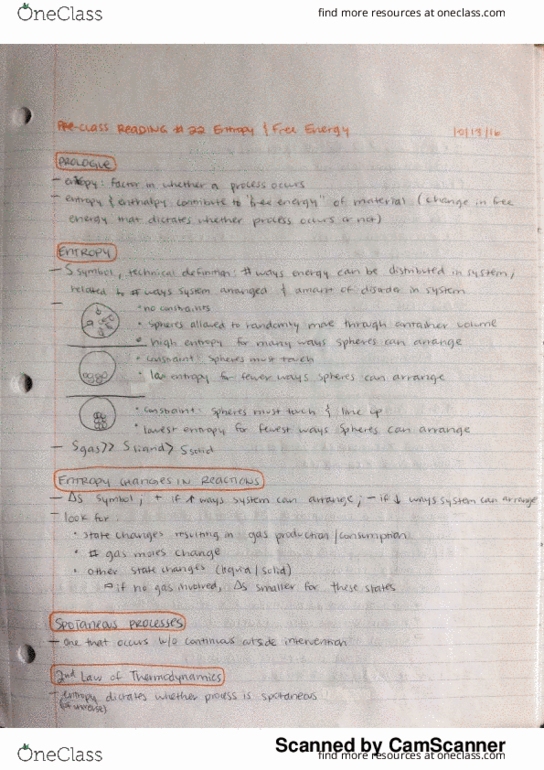 OneClass find more resources at oneclass.com
PRE-CLASS READING #22 Entropy & Free Energy 10/13/16
PROLOGUE
- entropy: factor in whether a process occurs
- entropy & enthalpy contribute to "free energy" of material (change in free
energy that dictates whether process occurs or not)
ENTROPY
- S symbol, technical definition: # ways energy can be distributed in system,
related to # ways system arranged & amount of disorder in system
- • no constraints
• spheres allowed to randomly move through container volume
• high entropy for many ways spheres can arrange
• constraint: spheres must touch
• low entropy for fewer ways spheres can arrange
• constraint: spheres must touch & line up
• lowest entropy for fewest ways spheres can arrange
- Sgas >> Sliquid > Ssolid
ENTROPY CHANGES IN REACTIONS
- ΔS symbol, + if ↑ ways system can arrange, - if ↓ ways system can arrange
- look for:
• state changes resulting in gas production/consumption
• # gas moles change
• other state changes (liquid/solid)
if no gas involved, ΔS smaller for these states
SPOTANEOUS PROCESSES
- one that occurs w/o continuous outside intervention
2nd Law of Thermodynamics
- entropy dictates whether process is spotaneous
(of universe)
Scanned by CamScanner
OneClass find more resources at oneclass.com